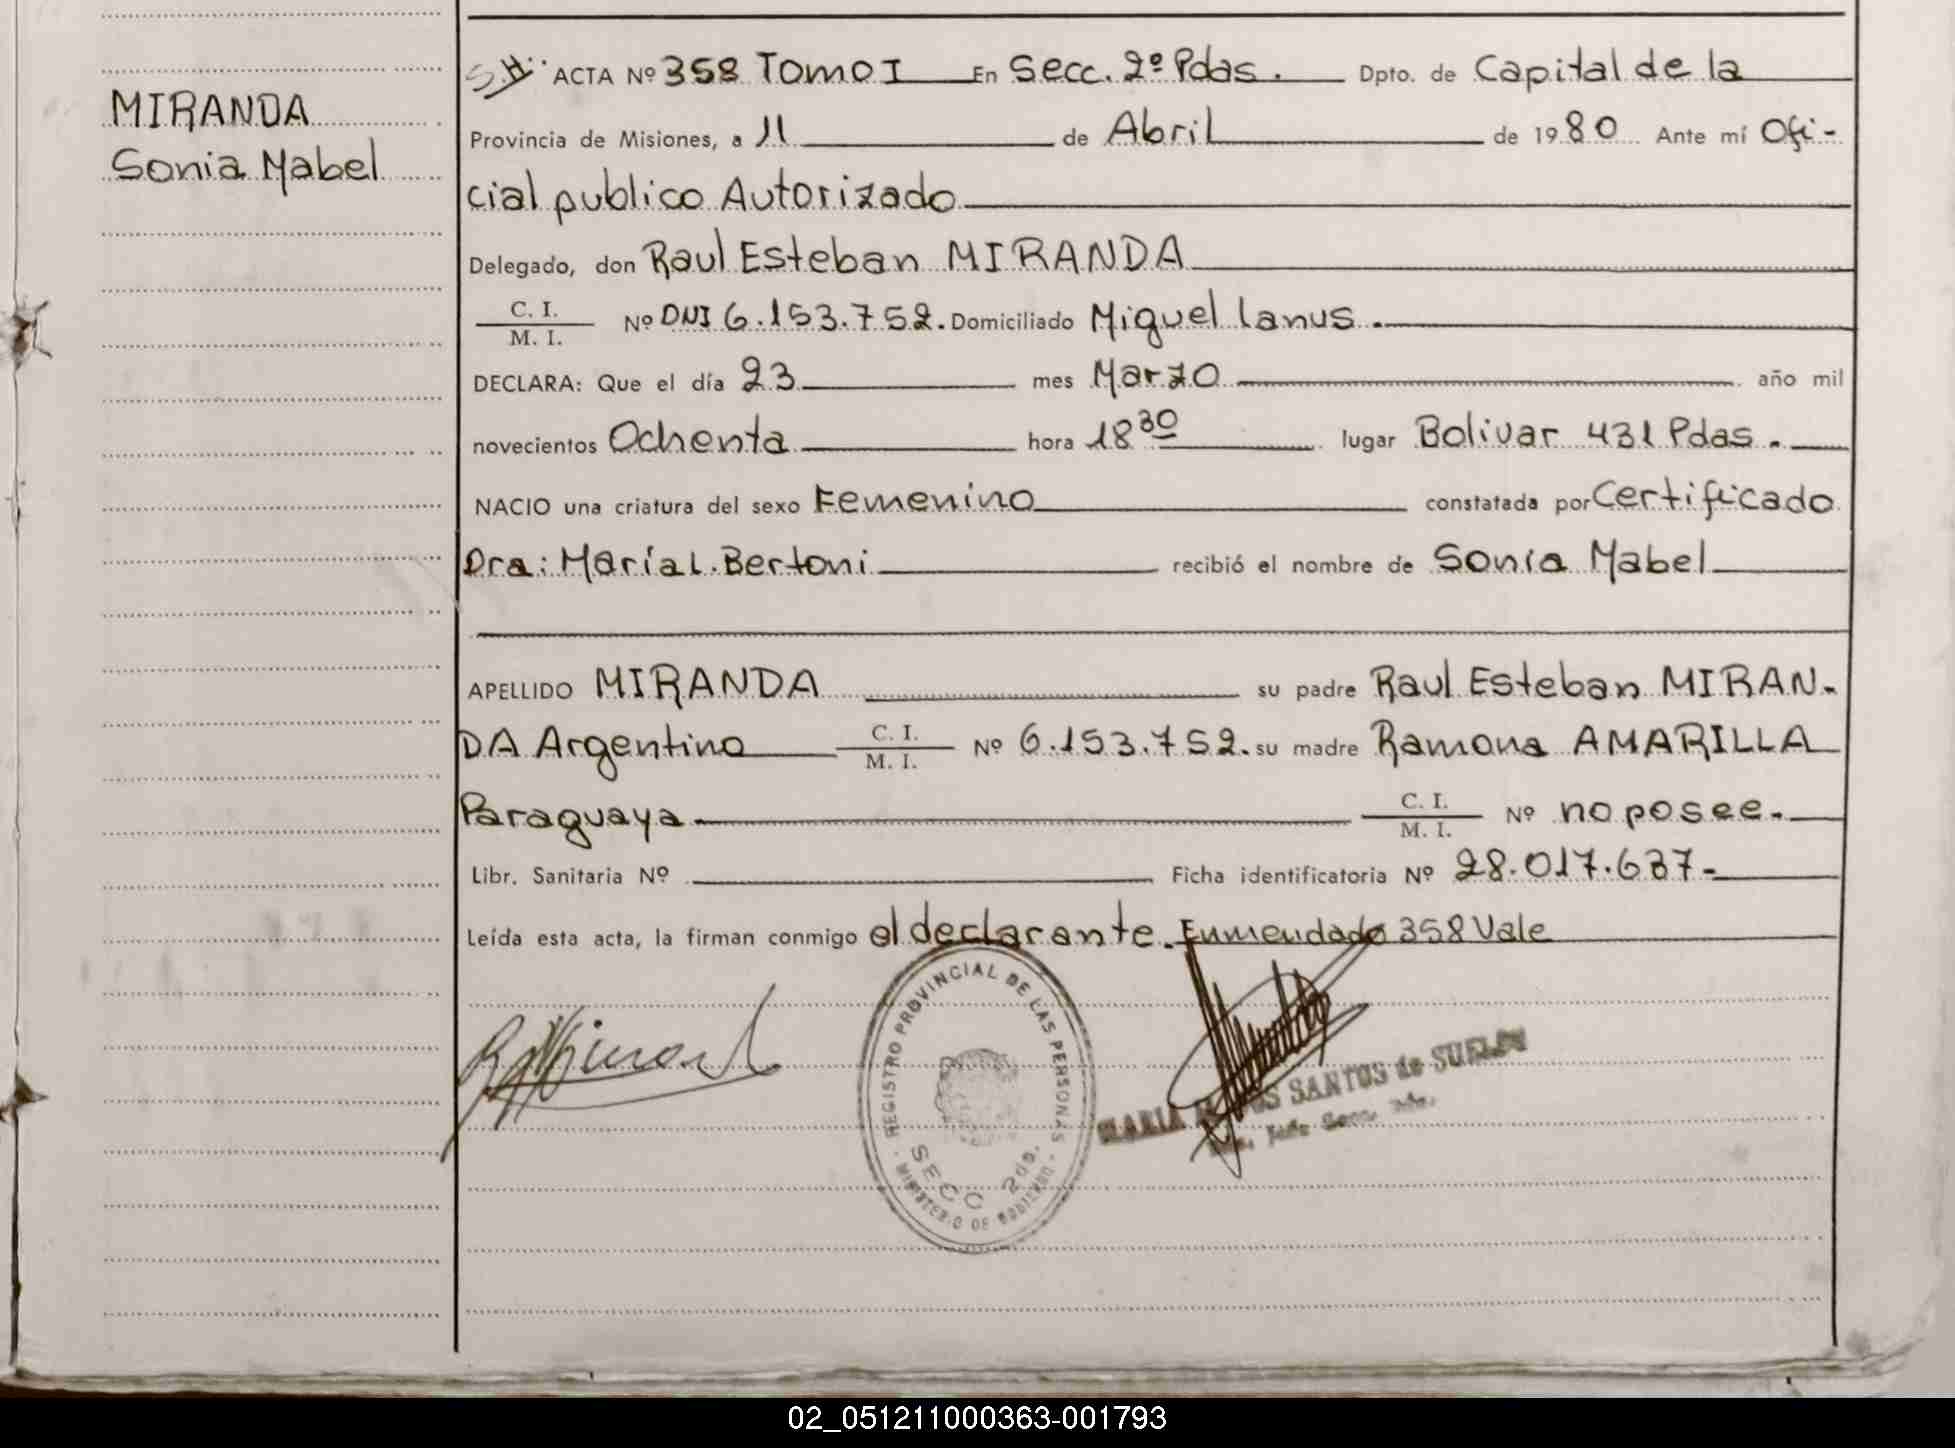 MIRANDA
Sonia Mabel
ACTA Nº 358 Tomo I En Secc. 2º Pdas. Dpto. de Capital de la
Provincia de Misiones, a 11 de Abril de 1980 Ante mí Ofi-
cial publico Autorizado
Delegado, don Raul Esteban MIRANDA
C. I.
M. I.
Nº DNI 6.153.752. Domiciliado Miguel Lanus.
DECLARA: Que el día 23 mes Marzo año mil
novecientos Ochenta hora 18 30 lugar Bolivar 431 Pdas.
NACIO una criatura del sexo Femenino constatada por Certificado
Dra: María L. Bertoni recibió el nombre de Sonia Mabel
APELLIDO MIRANDA su padre Raul Esteban MIRAN-
DA Argentino C. I. M. I. Nº 6.153.752. su madre Ramona AMARILLA
Paraguaya C. I. M. I. Nº no posee.
Libr. Sanitaria Nº Ficha identificatoria Nº 28.017.637-
Leída esta acta, la firman conmigo el declarante. Enmendado 358 Vale
REGISTRO PROVINCIAL DE LAS PERSONAS
SECC 2da.
MINISTERIO DE GOBIERNO
MARIA SANTOS de
Secc.
02_051211000363-001793